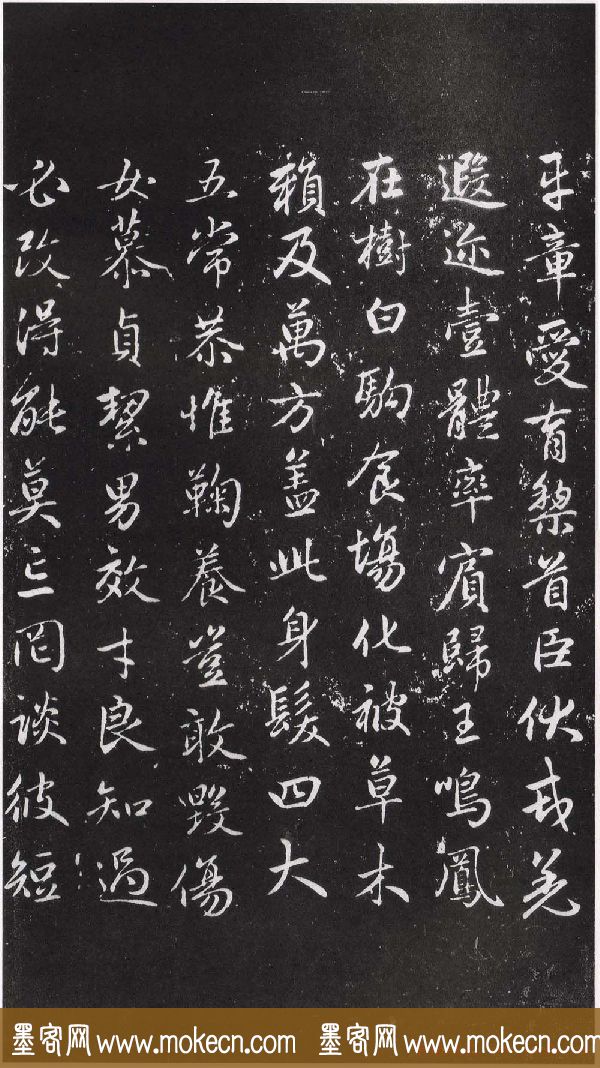 平章愛育黎首臣伏戎羌
遐迩壹體率賓歸王鳴鳳
在樹白駒食塲化被草木
賴及萬方盖此身髮四大
五常恭惟鞠養豈敢毀傷
女慕貞絜男效才良知過
必改得能莫忘罔談彼短
墨客网 www.mokecn.com 墨客网 www.mokecn.com